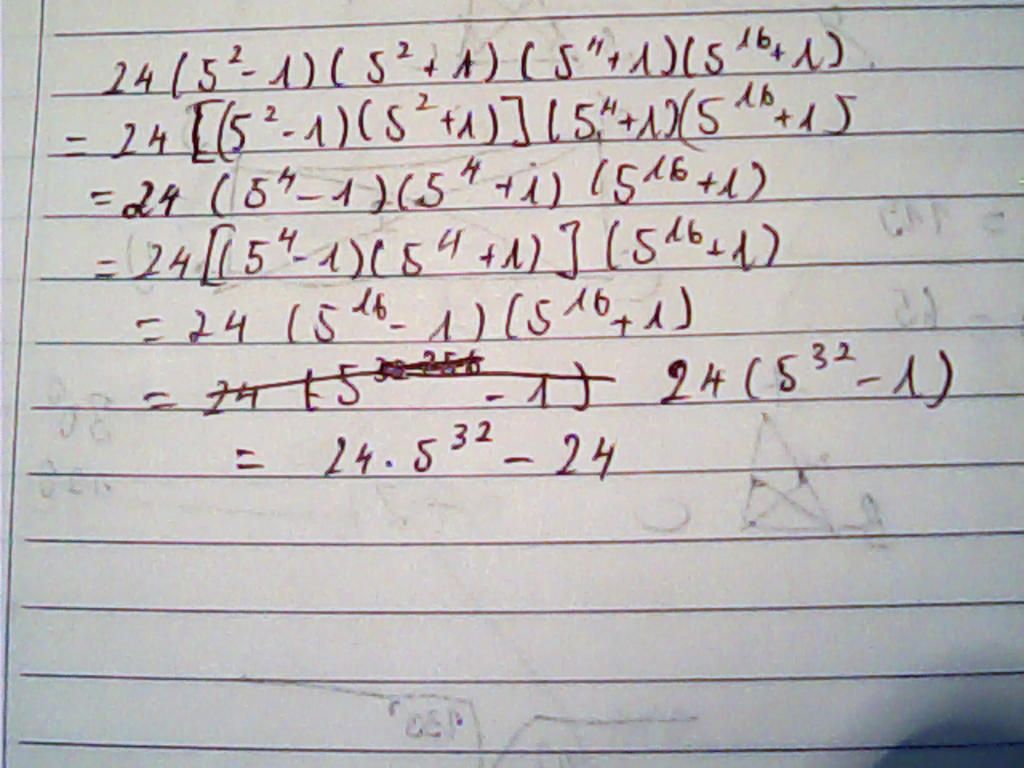 24(5²-1)(5²+1)(5⁴+1)(5¹⁶+1)
= 24[(5²-1)(5²+1)](5⁴+1)(5¹⁶+1)
= 24(5⁴-1)(5⁴+1)(5¹⁶+1)
= 24[(5⁴-1)(5⁴+1)](5¹⁶+1)
= 24(5¹⁶-1)(5¹⁶+1)
= 24(5 -1) 24(5³²-1)
= 24.5³²-24